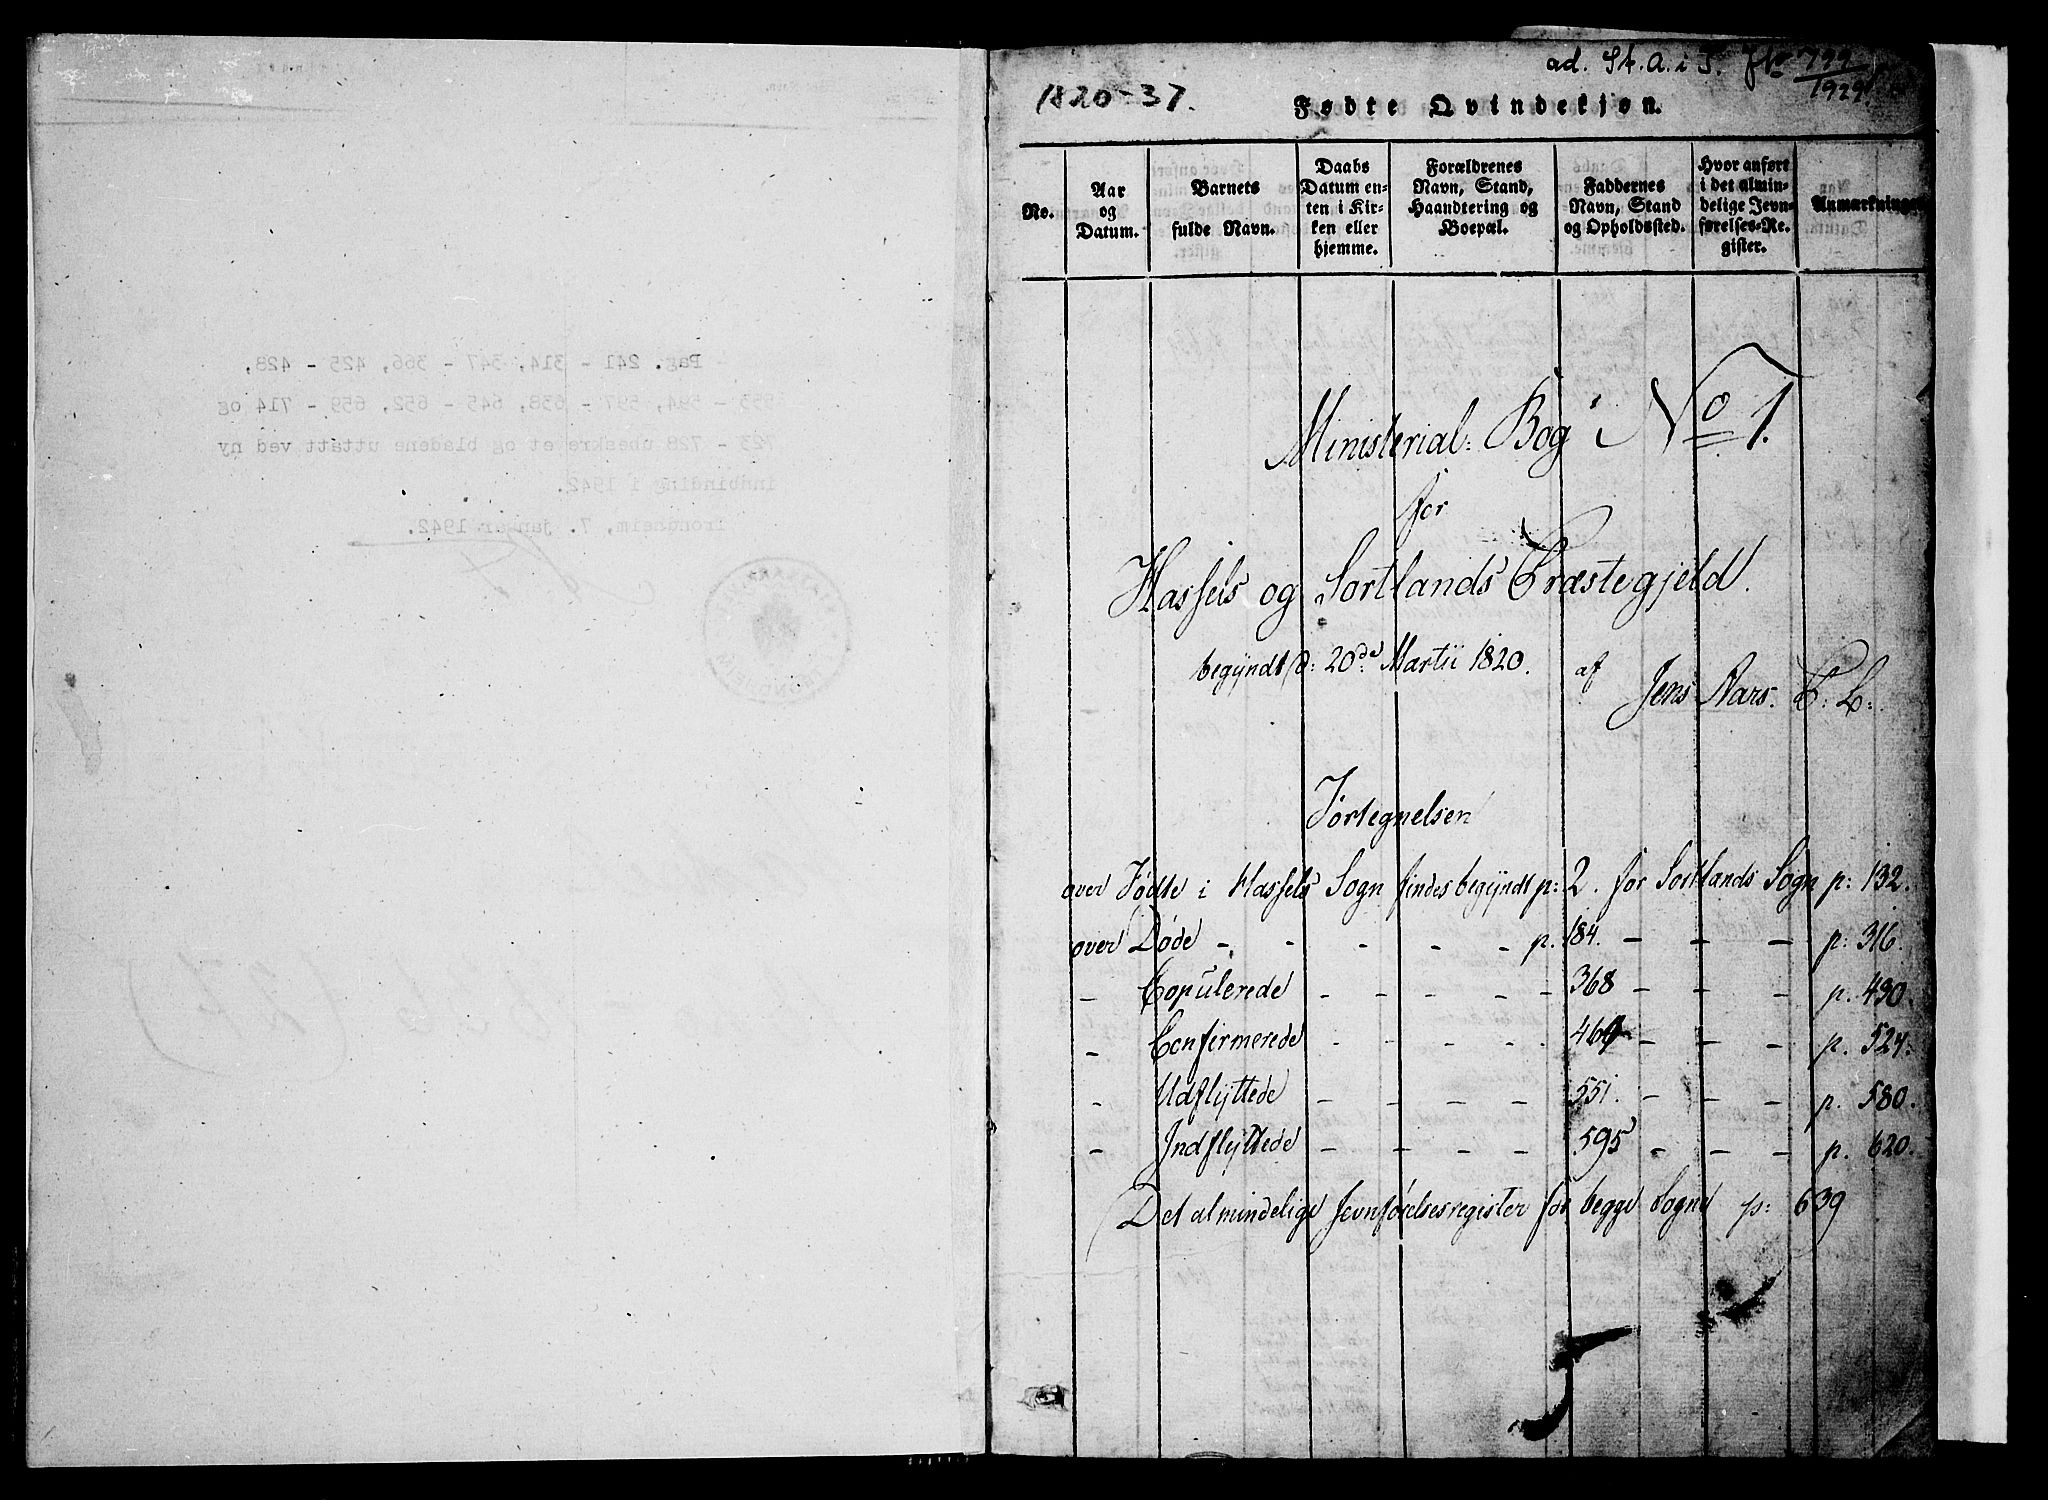 Pag. 241 - 314, 347 - 366, 425 - 428,
553 - 594, 597 - 638, 645 - 652, 659 - 714 og
723 - 728 ubeskrevet og bladene uttatt ved ny
indbinding i 1942.
Trondheim, 7. januar 1942.
ad. St. A. i T. Jr. 799/1929
1820-37.
Fødte Qvindekjøn.
No.
Aar
og
Datum.
Barnets
fulde Navn.
Daabs
Datum en-
ten i Kir-
ken eller
hjemme.
Forældrenes
Navn, Stand,
Haandtering og
Boepæl.
Faddernes
Navn, Stand
og Opholdssted.
Hvor anført
i det almin-
delige Jevn-
førelses-Re-
gister.
Anmærkninge
Ministerial: Bog No 1.
for
Hassels og Sortlands Præstegjeld.
begyndt d: 20de Martii 1820. af
Jens Aars.
Fortegnelsen
over Fødte i Hassels Sogn findes begyndt p: 2. for Sortlands Sogn p: 132.
over Døde - - - - - p. 184. - - - p: 316.
- Copulerede - - - - - 368 - - - p. 430.
- Confirmerede - - - - 464 - - - p. 524.
- Udflyttede - - - - 551. - - - p. 580.
- Indflyttede - - - - 595 - - - p. 620.
Det almindelige Jevnførelsesregister for begge Sogne p: 639